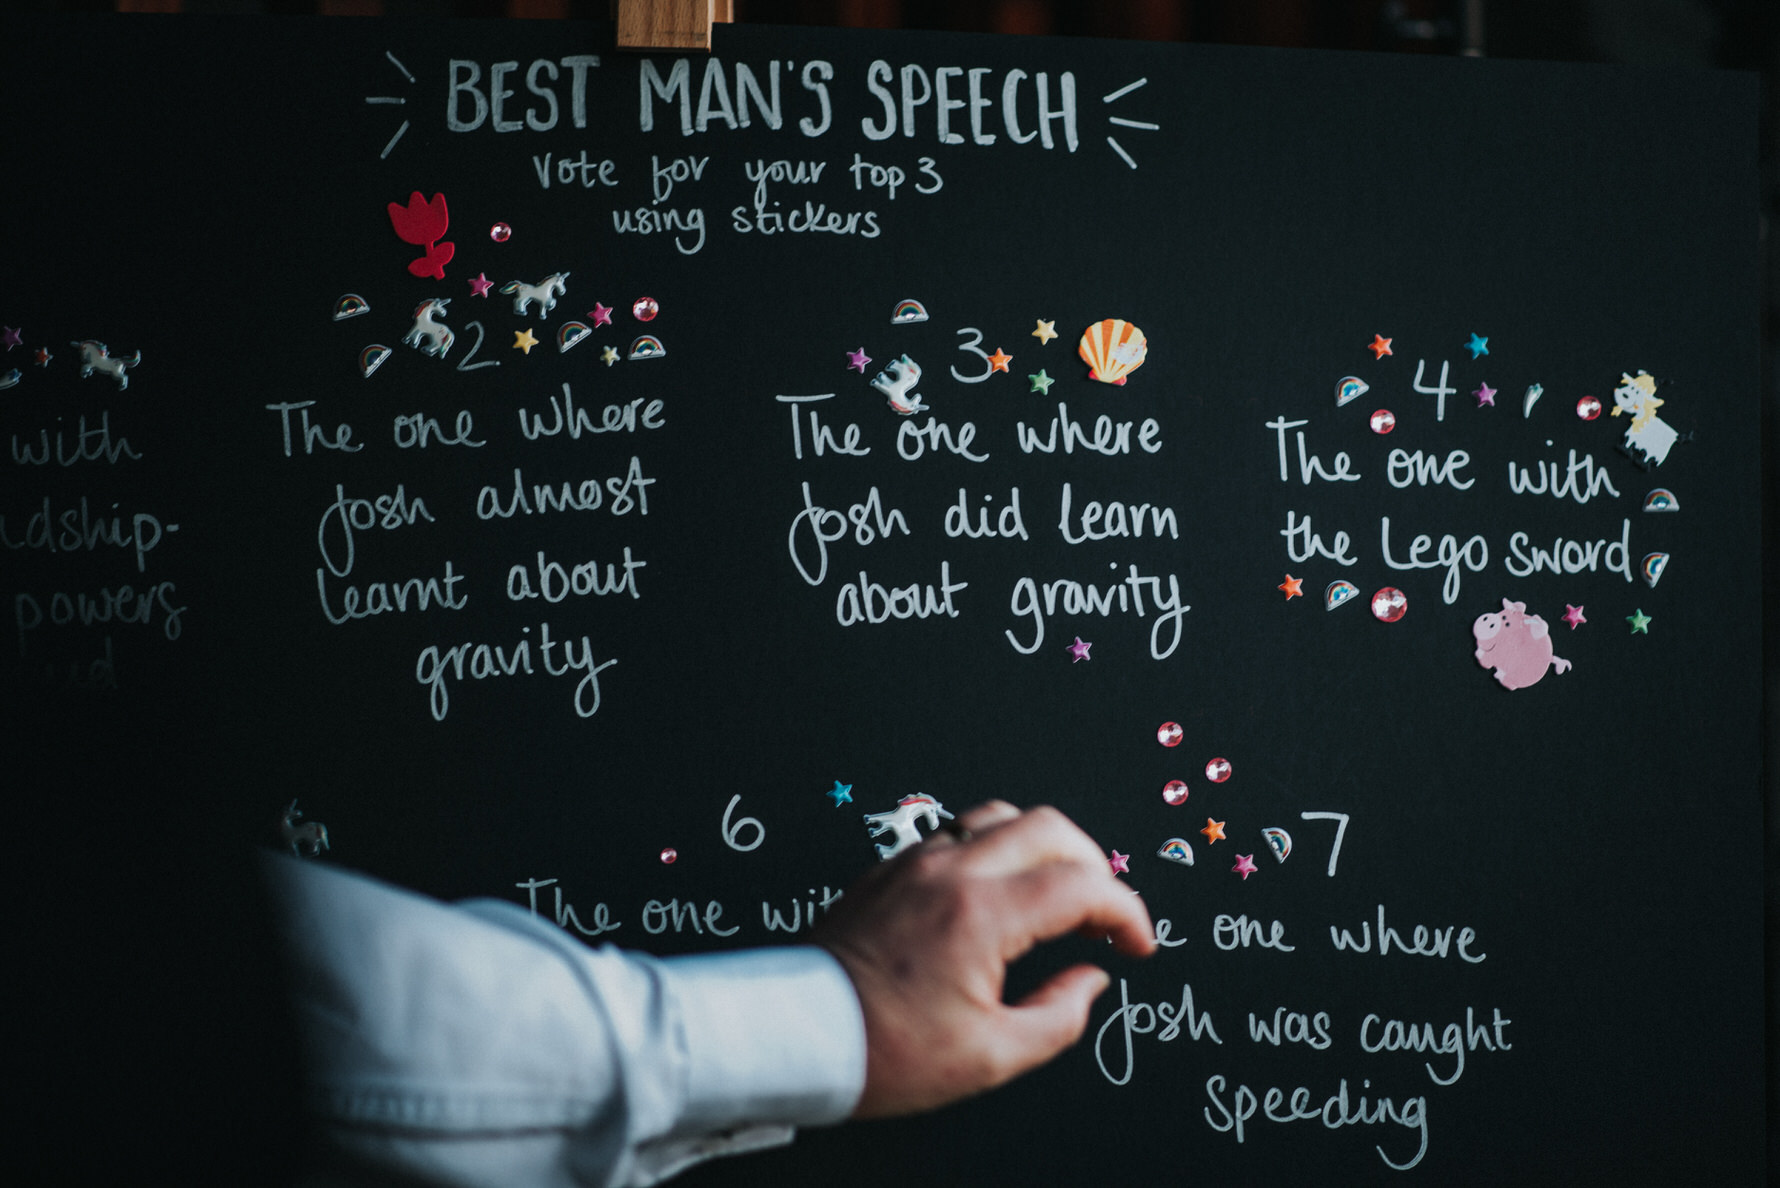 BEST MAN'S SPEECH
Vote for your top 3
using stickers
with
powers
2
The one where
Josh almost
learnt about
gravity
3
The one where
Josh did learn
about gravity
4
The one with
the Lego sword
6
The one
7
one where
Josh was caught
speeding